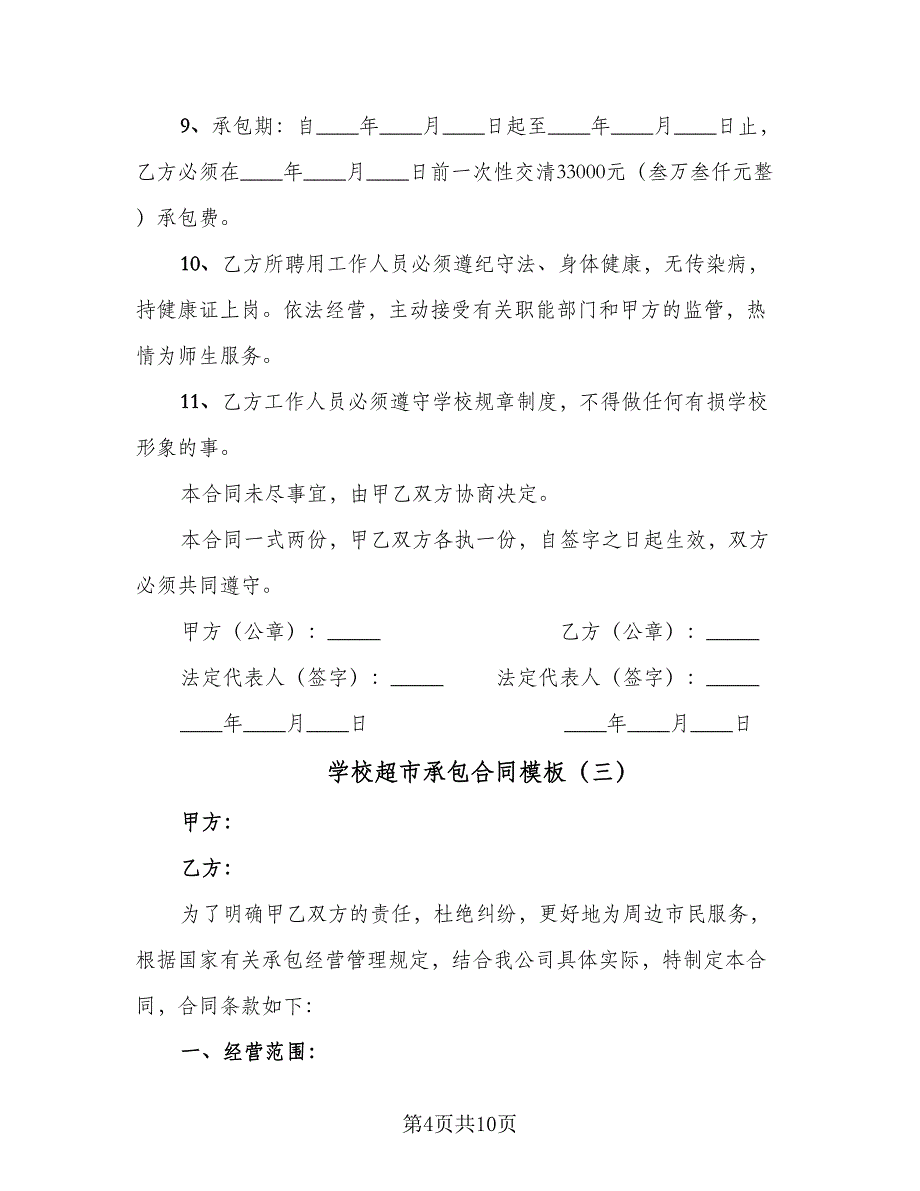 9、承包期：自____年____月____日起至____年____月____日止，
乙方必须在____年____月____日前一次性交清33000元（叁万叁仟元整
）承包费。
10、乙方所聘用工作人员必须遵纪守法、身体健康，无传染病，
持健康证上岗。依法经营，主动接受有关职能部门和甲方的监管，热
情为师生服务。
11、乙方工作人员必须遵守学校规章制度，不得做任何有损学校
形象的事。
本合同未尽事宜，由甲乙双方协商决定。
本合同一式两份，甲乙双方各执一份，自签字之日起生效，双方
必须共同遵守。
甲方（公章）：_____ 乙方（公章）：_____
法定代表人（签字）：_____ 法定代表人（签字）：_____
____年____月____日 ____年____月____日
学校超市承包合同模板（三）
甲方：
乙方：
为了明确甲乙双方的责任，杜绝纠纷，更好地为周边市民服务，
根据国家有关承包经营管理规定，结合我公司具体实际，特制定本合
同，合同条款如下：
一、经营范围：
第4页共10页